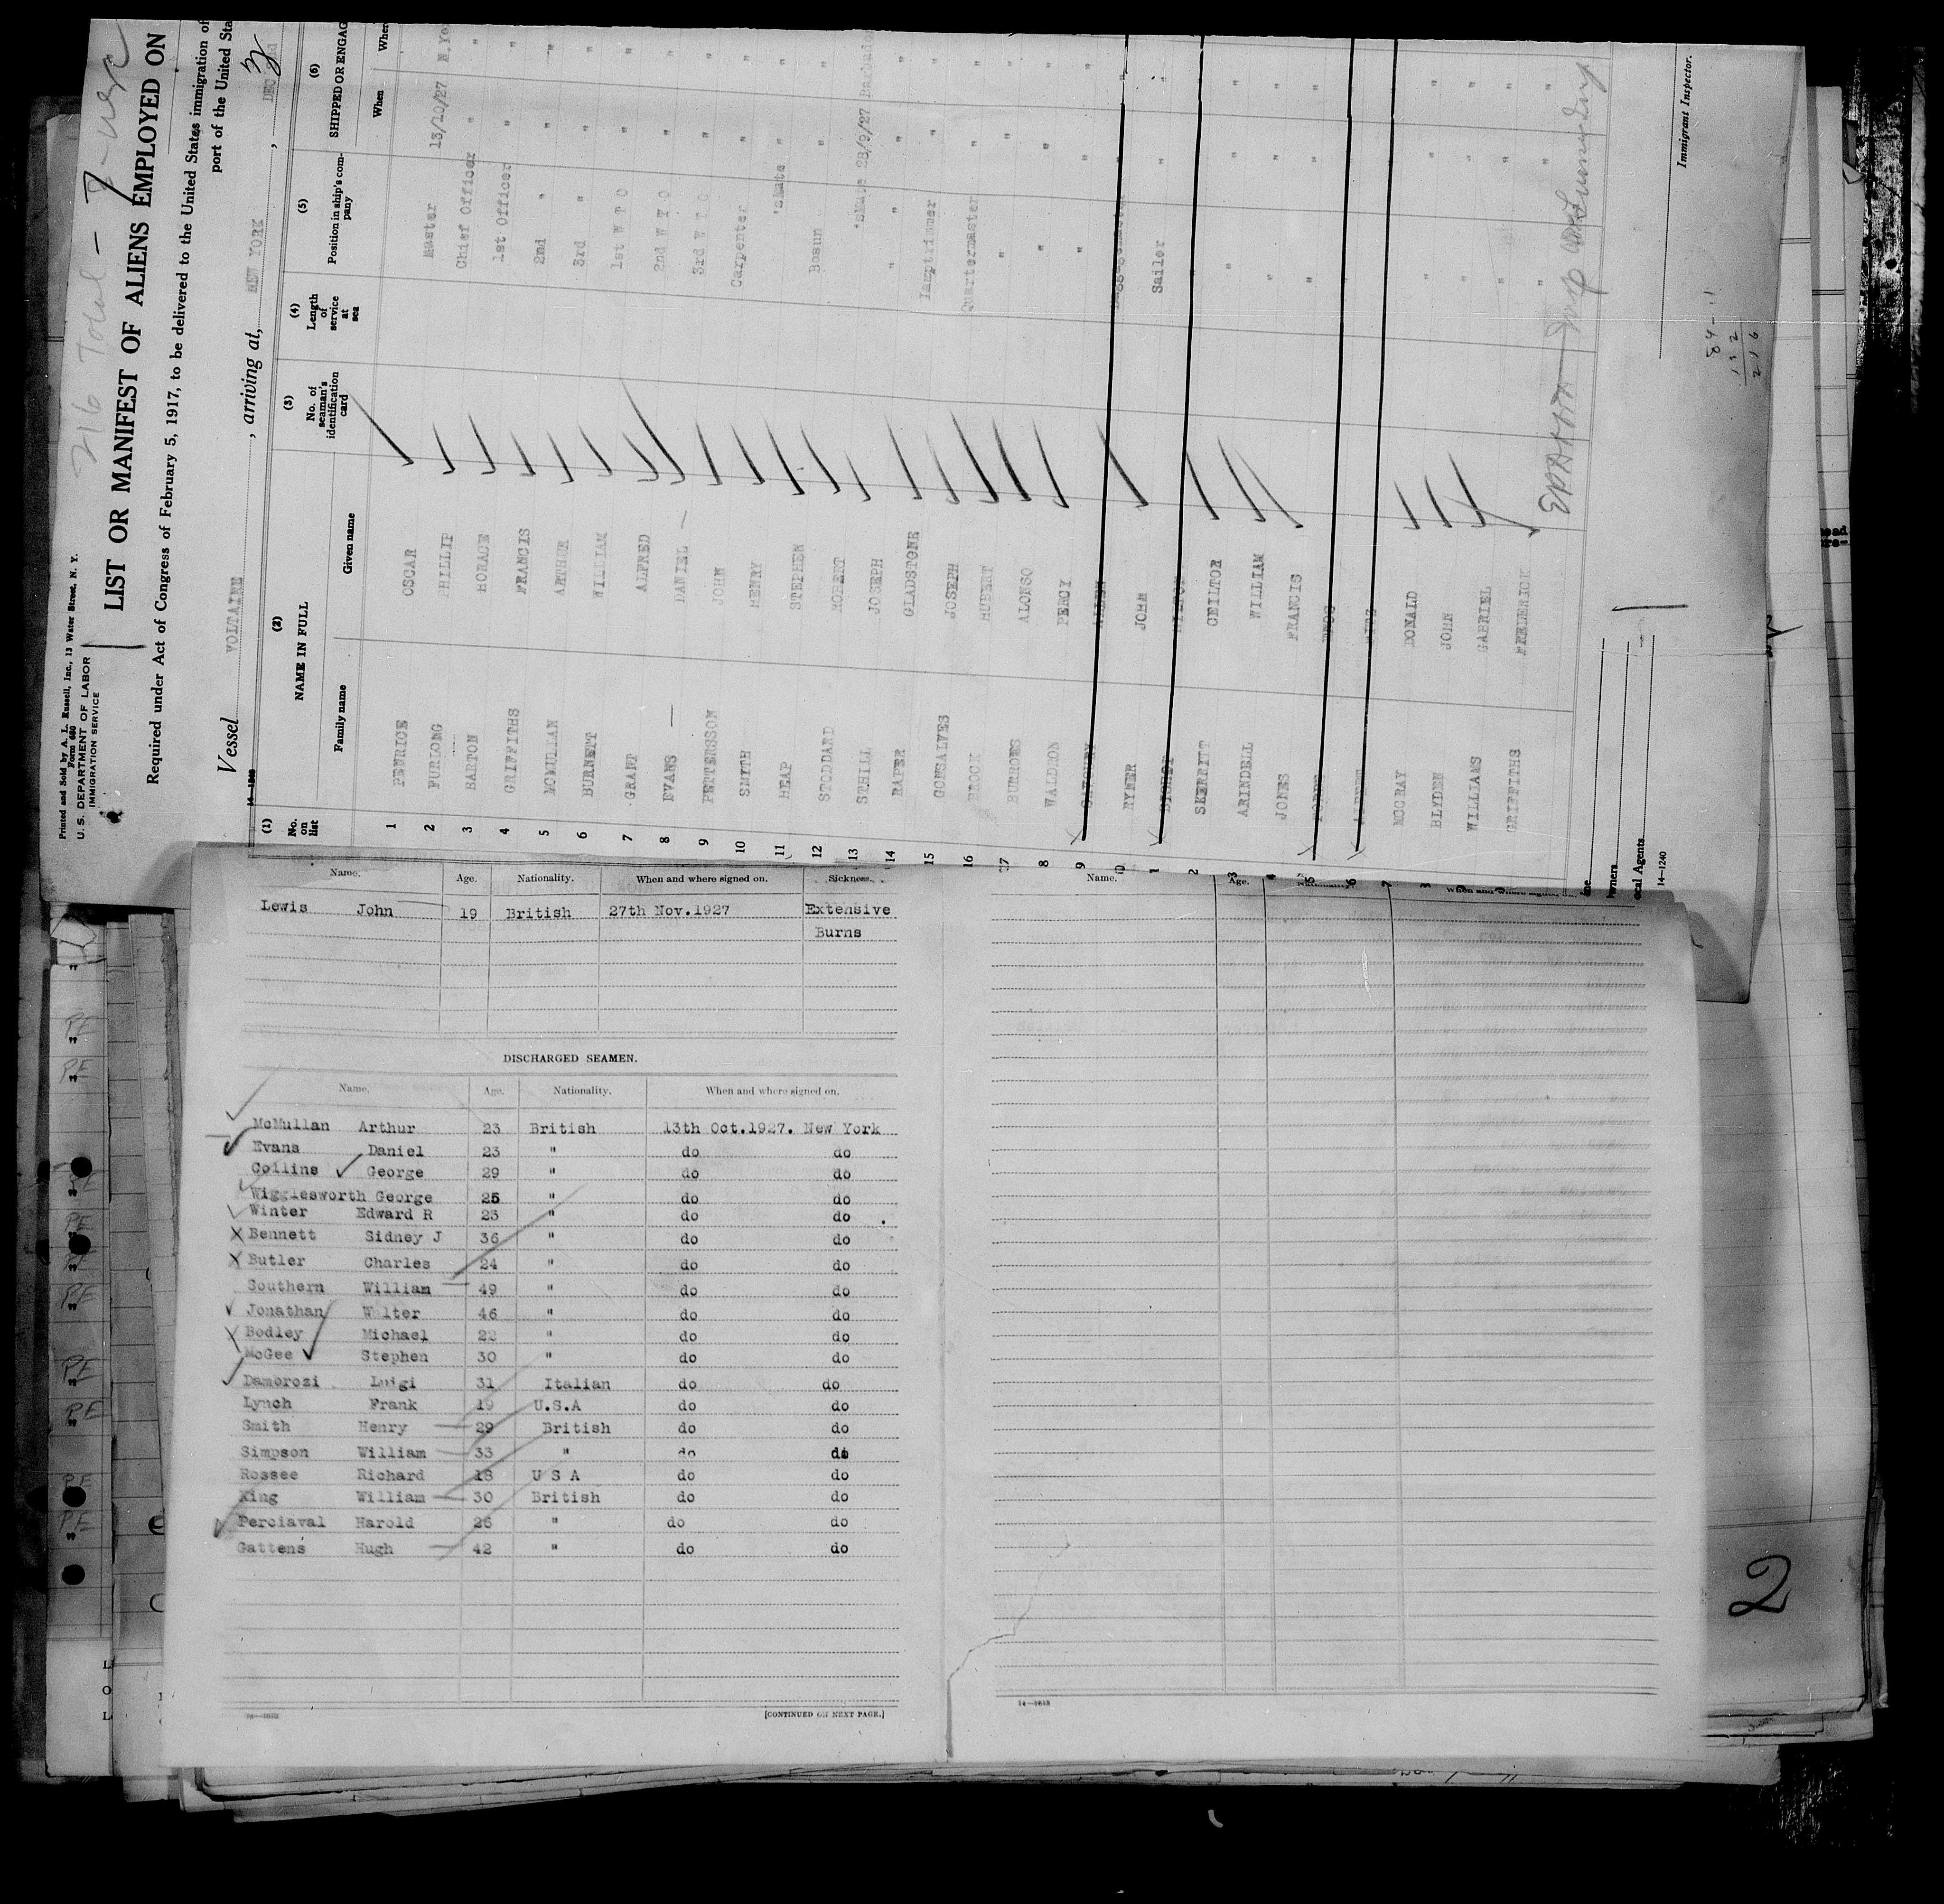 216 Total -
Printed and Sold by A. L. Russell, Inc., 13 Water Street, N. Y.
Form 680
U. S. DEPARTMENT OF LABOR
IMMIGRATION SERVICE
LIST OR MANIFEST OF ALIENS EMPLOYED ON
Required under Act of Congress of February 5, 1917, to be delivered to the United States immigration of
port of the United Sta
Vessel VOLTAIRE, arriving at, NEW YORK, DEC
14-1240
(1) No. on list (2) NAME IN FULL Family name Given name (3) No. of seaman's identification card (4) Length of service at sea (5) Position in ship's company (6) SHIPPED OR ENGAG When Wher
1 PENRICE OSCAR Master 13/10/27 N.Yo
2 FURLONG PHILLIP Chief Officer " "
3 BARTON HORACE 1st Officer " "
4 GRIFFITHS FRANCIS 2nd " " "
5 MCMULLAN ARTHUR 3rd " " "
6 BURNETT WILLIAM 1st W T O " "
7 GRANT ALFRED 2nd W T O " "
8 EVANS DANIEL 3rd W T O " "
9 PETTERSSON JOHN Carpenter " "
10 SMYTH HENRY 'sMate " "
11 HEAP STEPHEN Bosun " "
12 STODDARD ROBERT 'sMate 28/9/27 Barbados
13 SEHILL JOSEPH " " "
14 RAPER GLADSTONE Lamptrimmer " "
15 GONSALVES JOSEPH Quartermaster " "
16 BROOK HUBERT " " "
17 BURROWS ALONSO " " "
8 WALDRON PERCY " " "
9
0 RYMER JOHN Sailer " "
1
2 SKERRIT CEILTOR " " "
3 ARINDELL WILLIAM " " "
4 JONES FRANCIS " " "
5
6
7 MCCRAY DONALD " " "
8 BLYDEN JOHN " " "
WILLIAMS GABRIEL " " "
GRIFFITHS FREDERICK " " "
Immigrant Inspector.
84-11
132
216
wners
cal Agents
14-1240
Name. Age. Nationality. When and where signed on. Sickness.
Lewis John 19 British 27th Nov.1927 Extensive
Burns
DISCHARGED SEAMEN.
Name. Age. Nationality. When and where signed on.
McMullan Arthur 23 British 13th Oct.1927. New York
Evans Daniel 23 " do do
Collins George 29 " do do
Wigglesworth George 25 " do do
Winter Edward R 23 " do do
Bennett Sidney J 36 " do do
Butler Charles 24 " do do
Southern William 49 " do do
Jonathan Walter 46 " do do
Bodley Michael 22 " do do
McGee Stephen 30 " do do
Damorozi Luigi 31 Italian do do
Lynch Frank 19 U.S.A do do
Smith Henry 29 British do do
Simpson William 33 " do do
Rossee Richard 18 U S A do do
King William 30 British do do
Perciaval Harold 26 " do do
Gattens Hugh 42 " do do
[CONTINUED ON NEXT PAGE.]
Name. Age. Nationality. When and where signed on.
2